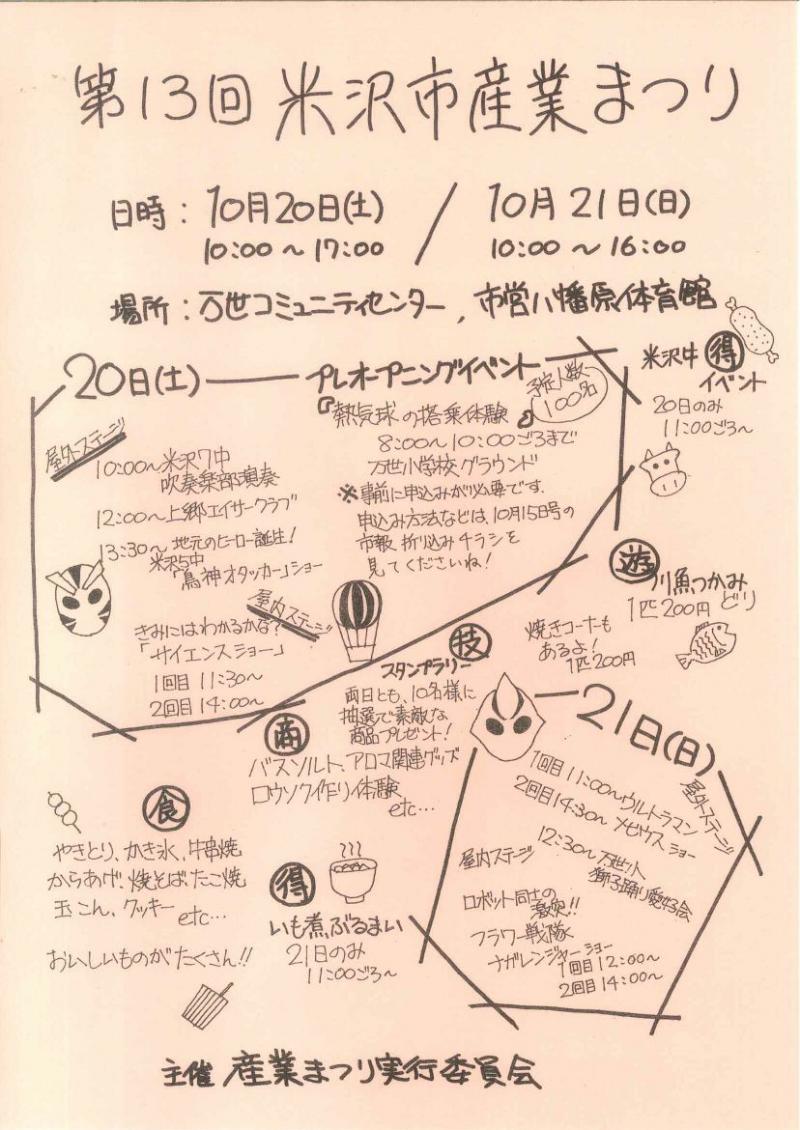 第13回 米沢市産業まつり
日時：10月20日(土) / 10月21日(日)
10:00～17:00 10:00～16:00
場所：万世コミュニティセンター、市営八幡原体育館
20日(土)
プレオープニングイベント
予定人数100名
『熱気球の搭乗体験』
8:00～10:00ごろまで
万世小学校グラウンド
※事前に申込みが必要です.
申込み方法などは、10月15日号の
市報 折り込みチラシを
見てくださいね!
屋外ステージ
10:00～米沢7中
吹奏楽部演奏
12:00～上郷エイサークラブ
13:30～地元のヒーロー誕生!
「鳥神オタッカー」ショー
屋内ステージ
きみにはわかるかな?
「サイエンスショー」
1回目 11:30～
2回目 14:00～
米沢牛 得
イベント
20日のみ
11:00ごろ～
遊
川魚つかみ
どり
1匹200円
焼きコーナーも
あるよ!
1匹200円
技
スタンプラリー
両日とも、10名様に
抽選で素敵な
商品プレゼント!
商
バスソルト、アロマ関連グッズ
ロウソク作り体験
etc…
食
やきとり、かき氷、牛串焼
からあげ、焼そば、たこ焼
玉こん、クッキー
etc…
おいしいものがたくさん!!
得
いも煮ぶるまい
21日のみ
11:00ごろ～
21日(日)
屋外ステージ
1回目 11:00～ウルトラマン
2回目 14:30～メビウスショー
12:30～万世梓山
獅子踊り愛好会
屋内ステージ
ロボット同士の
激突!!
フラワー戦隊
ナガレンジャーショー
1回目 12:00～
2回目 14:00～
主催 産業まつり実行委員会